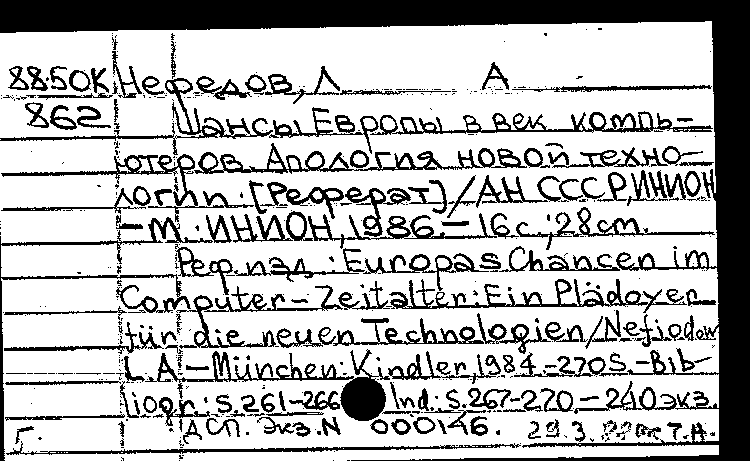 88-50К Нефедов, Л А
862 Шансы Европы в век компь-
ютеров. Апология новой техно-
логии: [Реферат]/АН СССР, ИНИОН
-М.: ИНИОН, 1986.-16с.; 28cm.
Реф. изд.: Europas Chancen im
Computer-Zeitalter: Ein Plädoyer
für die neuen Technologien/Nefiodow
L.A.-München: Kindler, 1984.-270S.-Bib-
liogr.: S.261-266 Ind.: S.267-270.-240экз.
5. ДСП. Экз.N 000146. 29.3.